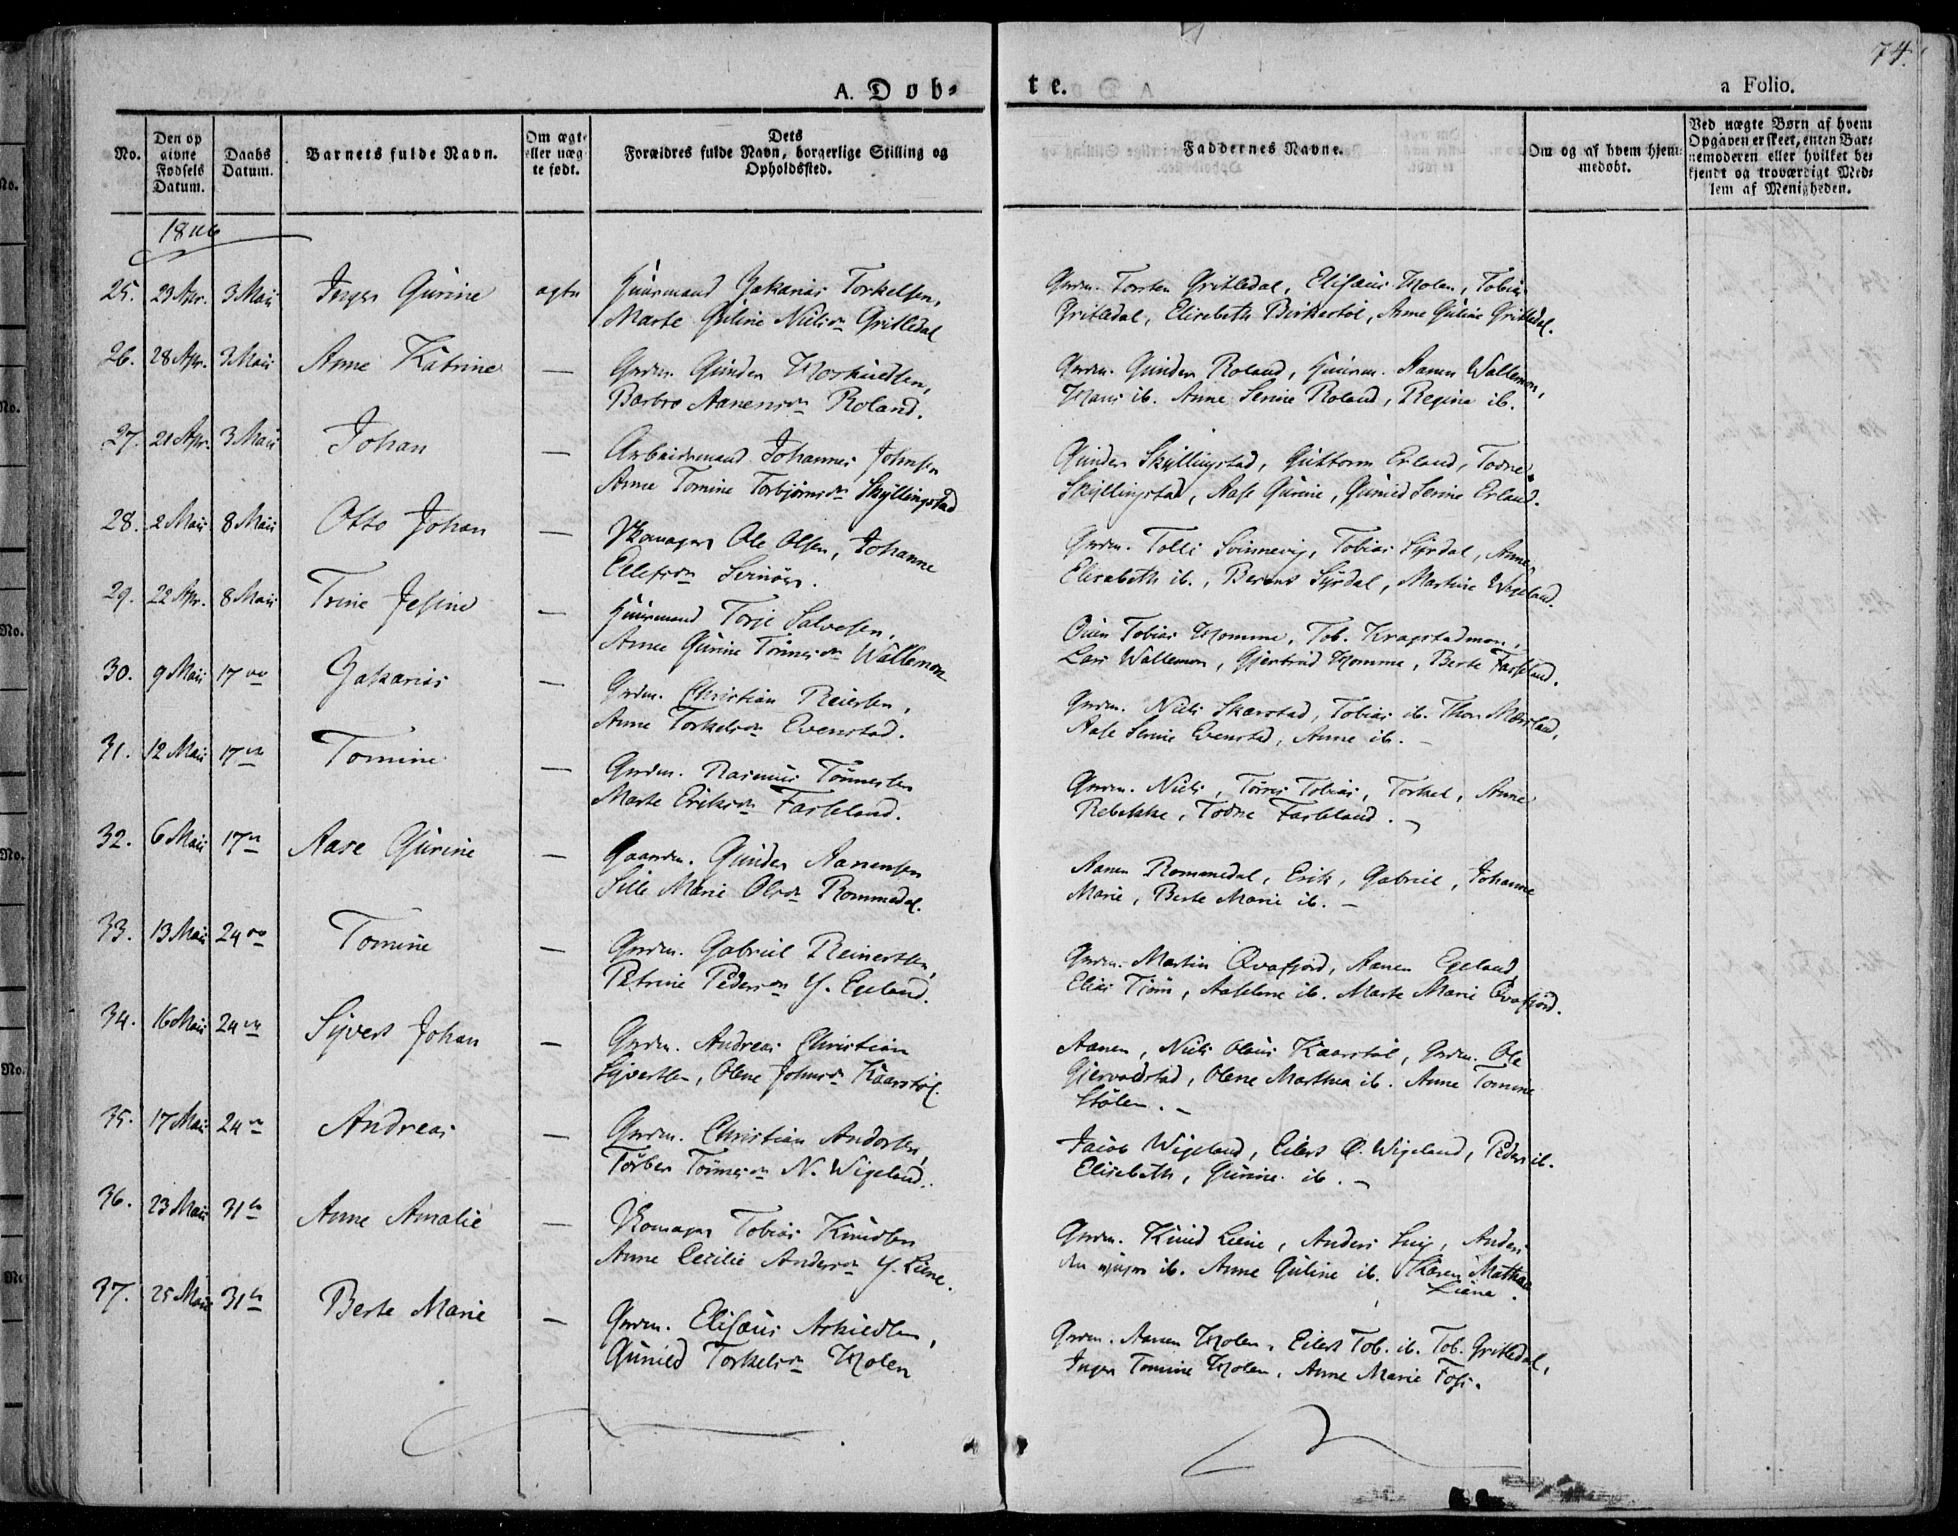 74.
A. Døb-
te.
a Folio.
No.
Den op
givne
Fødsels
Datum.
Daabs
Datum.
Barnets fulde Navn.
Om ægte
eller uæg-
te født.
Dets
Forældres fulde Navn, borgerlige Stilling og
Opholdssted.
Faddernes Navne.
Om og af hvem hjem-
medøbt.
Ved uægte Børn af hvem
Opgaven er skeet, enten Bar-
nemoderen eller hvilket be-
kjendt og troværdigt Med-
lem af Menigheden.
1846
25. 23 Apr. 3 Maii Inger Gurine ægte Huusmand Zakarias Torkelsen,
Marte Guline Nielsdr Gritledal
Grdm. Torsten Gritledal, Elisæus Molen, Tobias
Gritledal, Elisabeth Birkestøl, Anne Guline Gritledal.
26. 28 Apr. 3 Maii Anne Katrine — Grdm. Gunder
Barbro Aanensdr Roland.
Grdm. Gunder Roland, Huusm. Aanen Wallemon,
Hans ib. Anne Serine Roland, Regine ib.
27. 21 Apr. 3 Maii Johan — Arbeidsmand Johannes Johnsen
Anne Tomine Torbjørnsdr Skyllingstad
Gunder Skyllingstad, Guttorm Erland, Todne
Skyllingstad, Aase Gurine, Gunild Serine Erland.
28. 2 Maii 8 Maii Otto Johan — Skomager Ole Olsen, Johanne
Ellefsdr Svinøer.
Grdm. Tolli Svinnevig, Tobias Syrdal, Anne
Elisabeth ib., Berent Syrdal, Martine Wigeland.
29. 22 Apr. 8 Maii Trine Jesine — Huusmand Torje Salvesen,
Anne Gurine Tønnesdr Wallemon
Tobias Homme, Tob. Kragstadmon,
Lars Wallemon, Gjertrud Homme, Berte Faseland.
30. 9 Maii 17de Zakarias — Grdm. Christian Reiersen,
Anne Torkelsdr Evenstad.
Grdm. Niels Skarstad, Tobias ib. Thor
Aase Serine Evenstad, Anne ib. —
31. 12 Maii 17de Tomine — Grdm. Rasmus Tønnessen
Marte Eriksdr Faseland.
Grdm. Niels, Tørres Tobias, Torkel, Anne
Rebekke, Todne Faseland. —
32. 6 Maii 17de Aase Gurine — Gaardm. Gunder Aanensen
Sille Marie Olsdr Rommedal.
Aanen Rommedal, Erik, Gabriel, Johanne
Marie, Berte Marie ib. —
33. 13 Maii 24de Tomine — Grdm. Gabriel Reinertsen,
Petrine Pedersdr Y. Egeland.
Grdm. Martin Qvafjord, Aanen Egeland,
Elias Tjøm, Aaselene ib. Marte Marie Qvafjord.
34. 16 Maii 24de Syvert Johan — Grdm. Andreas Christian
Syvertsen, Olene Johnsdr Kaarstøl.
Aanen, Niels Olaus Kaarstøl, Grdm. Ole
Gjervoldstad, Olene Marthea ib. Anne Tomine
Stølen. —
35. 17 Maii 24de Andreas — Grdm. Christian Andorsen,
Torber Tønnesdr N. Wigeland.
Jacob Wigeland, Eilert Ø. Wigeland, Peder ib.
Elisabeth, Gurine ib. —
36. 23 Maii 31te Anne Amalie — Skomager Tobias Knudsen
Anne Cecilie Andersdr Y. Liene.
Grdm. Knud Liene, Anders Snig, Anders
den yngre ib. Anne Guline ib. Karen Mathea
Liene.
37. 25 Maii 31te Berte Marie — Grdm. Elisæus Askildsen,
Gunild Torkelsdr Molen
Grdm. Aanen Molen, Eilert Tob. ib. Tob. Gritledal,
Inger Tomine Molen, Anne Marie Foss.